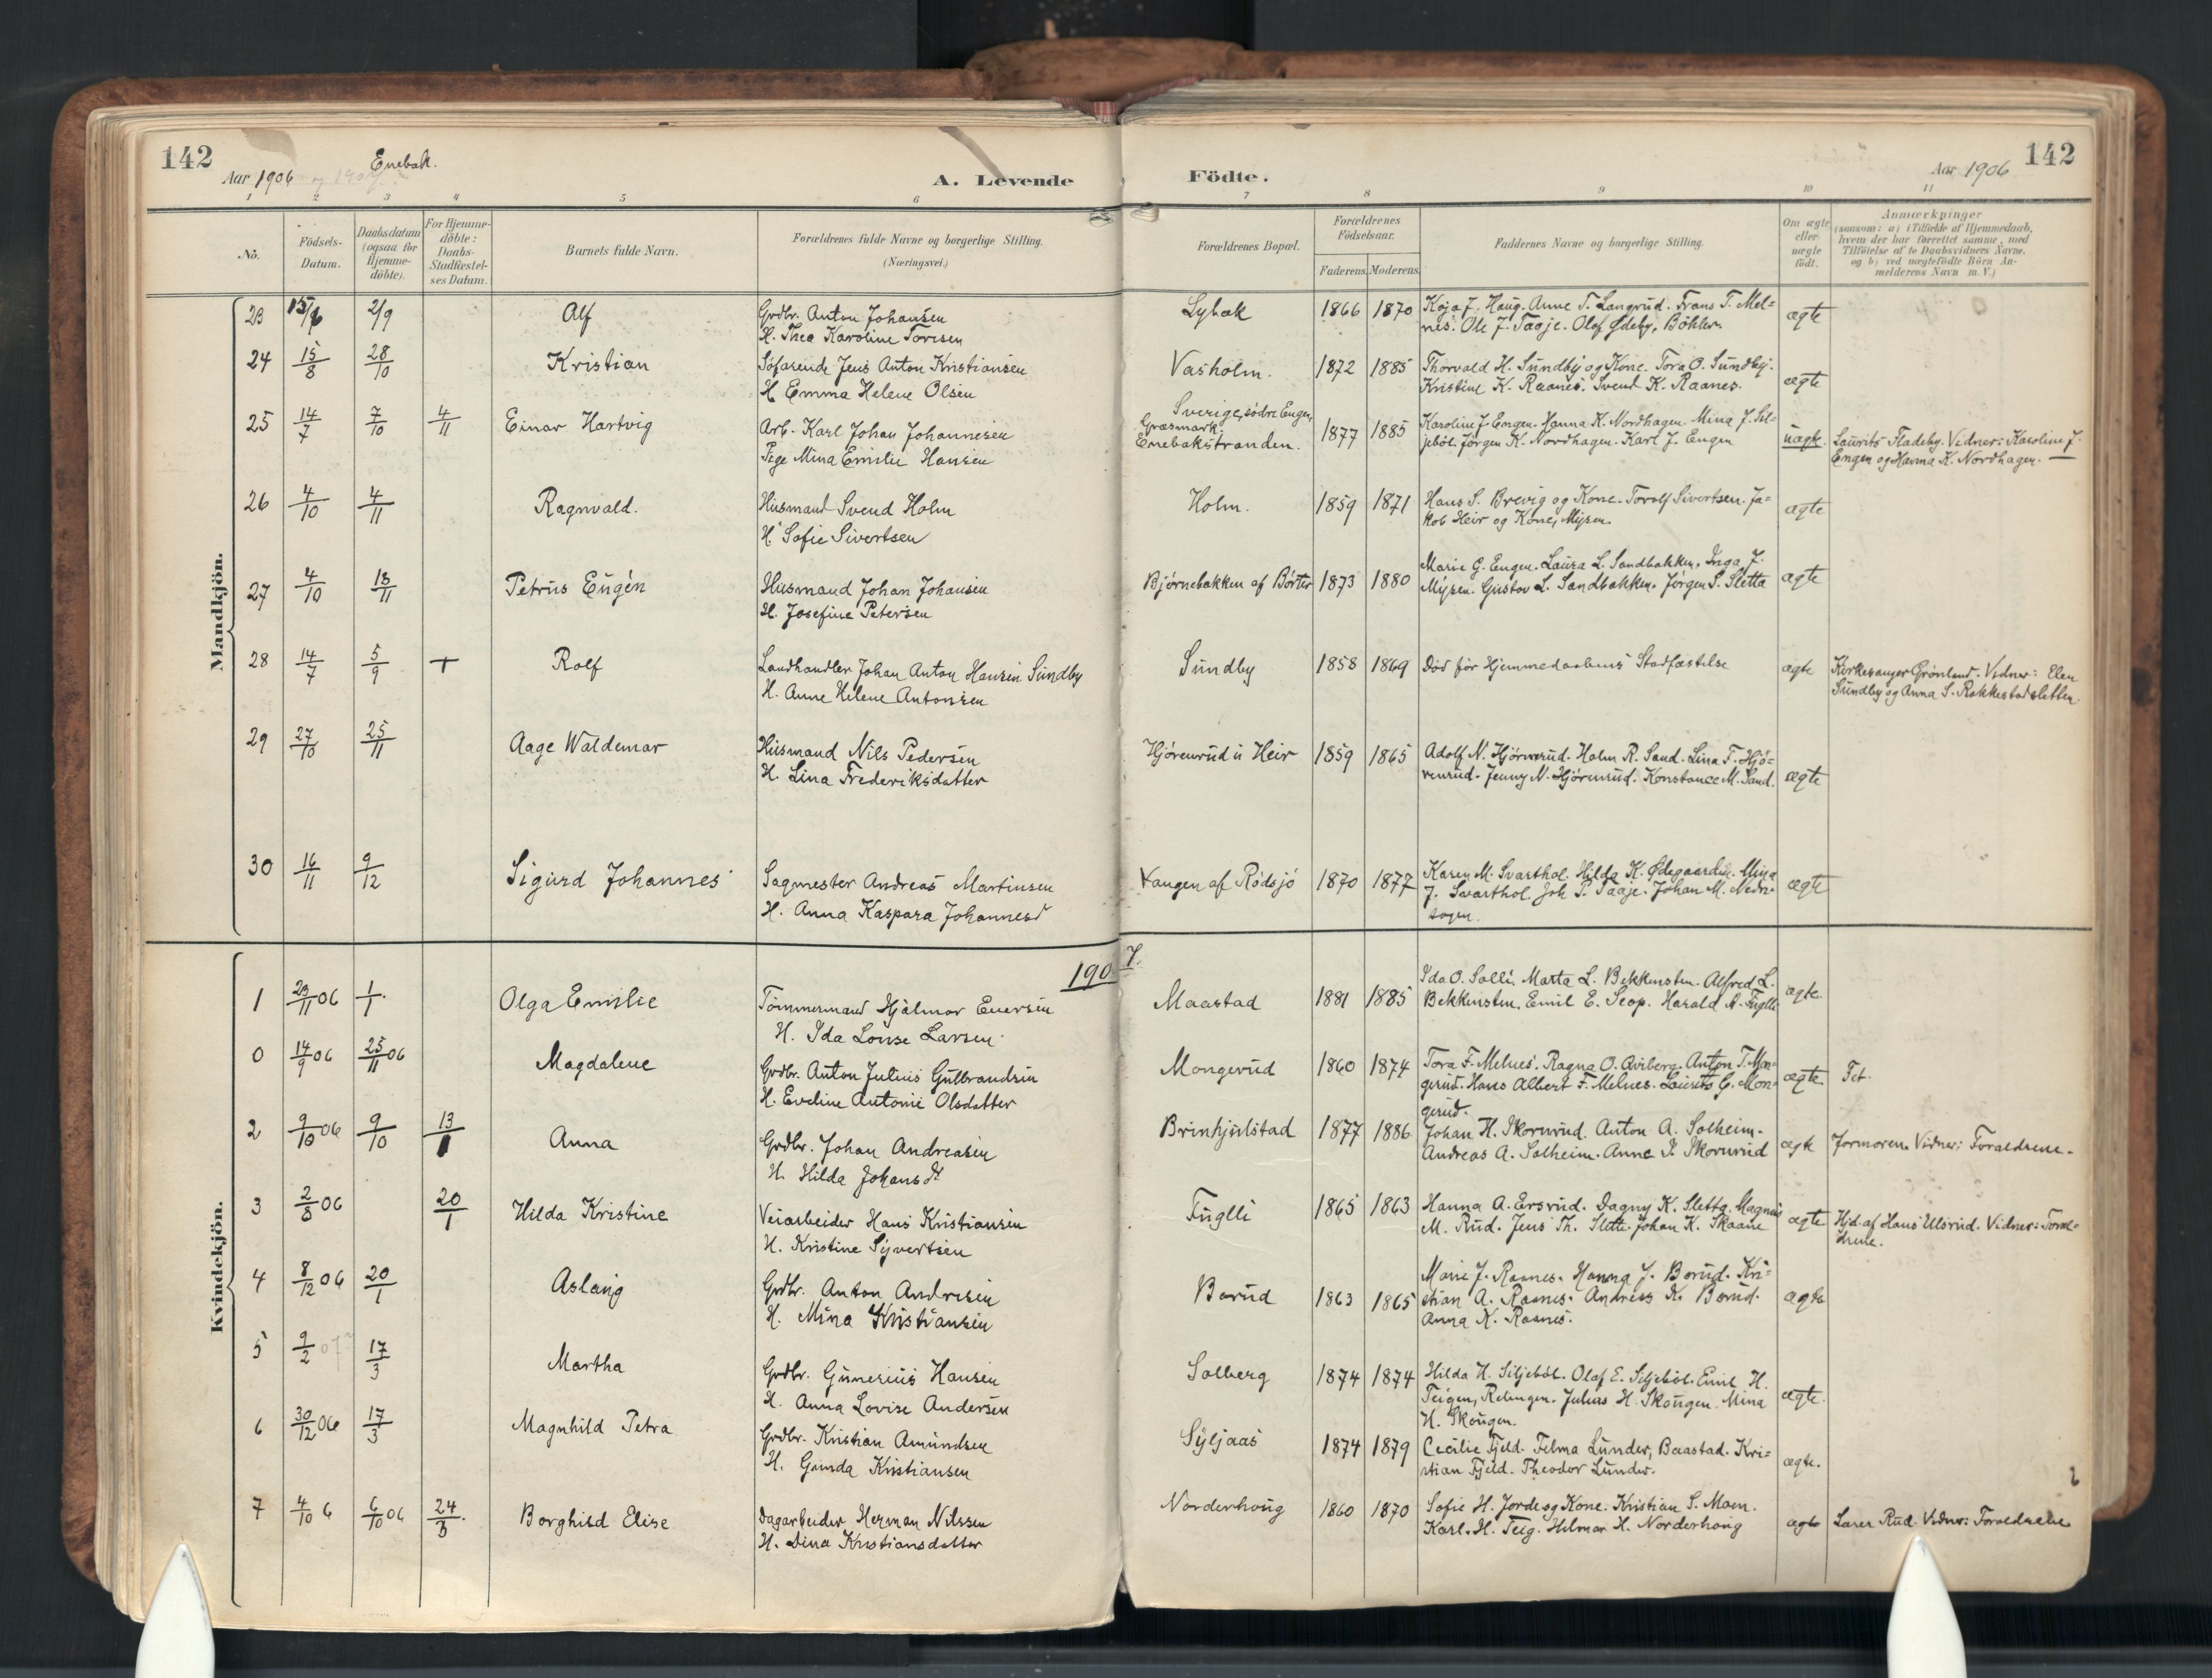 142
Enebak.
Aar 1906
A. Levende
Födte.
Aar 1906
142
1 2 3 4 5 6 7 8 9 10 11
Nö.
Födsels-Datum.
Daabsdatum (ogsaa for Hjemme-döbte).
For Hjemme-döbte: Daabs-Stadfæstel-ses Datum.
Barnets fulde Navn.
Forældrenes fulde Navne og borgerlige Stilling.
(Næringsvei.)
Forældrenes Bopæl.
Forældrenes Födselsaar.
Faderens. Moderens.
Faddernes Navne og borgerlige Stilling.
Om ægte eller uægte födt.
Anmærkninger
(saasom: a) i Tilfælde af Hjemmedaab,
hvem der har forrettet samme, med
Tilföielse af to Daabsvidners Navne,
og b) ved uægtefödte Börn An-
melderens Navn m. V.)
Mandkjön.
23 2/9 Alf Grdbr. Anton Johansen Lybak 1866 1870 Koja J. Haug. Anne T. Langrud. Frans T. Mel= ægte
H. Thea Karoline Torisen nes. Ole J. Taaje. Olaf Ødeby, Böhler.
24 15/8 28/10 Kristian Söfarende Jens Anton Kristiansen Vasholm. 1872 1885 Thorvald H. Sundby og Kone. Tora O. Sundby.
H Emma Helene Olsen Kristine K. Raanes. Svend K. Raanes. ægte
25 14/7 7/10 4/11 Einar Hartvig Arb. Karl Johan Johannesen Sverige, södre Engen, Græsmark; 1877 1885 Karoline J Engen. Hanna K. Nordhagen. Mina J. Sil=
Pige Mina Emilie Hansen Enebakstranden. jeböl. Jörgen K. Nordhagen. Karl J. Engen uægte. Laurits Fladeby. Vidner: Karoline J.
Engen og Hanna K. Nordhagen.
26 4/10 4/11 Ragnvald. Husmand Svend Holm Holm. 1859 1871 Hans S. Brevig og Kone. Torolf Sivertsen. Ja= ægte
H. Sofie Sivertsen kob Heir og Kone, Mysen.
27 4/10 18/11 Petrus Eugén Husmand Johan Johansen Bjørnebakken af Börter 1873 1880 Marie G. Engen. Laura L. Sandbakken. Inga J. ægte
H. Josefine Petersen Mysen. Gustav L. Sandbakken. Jørgen S. Sletta
28 14/7 5/9 + Rolf Landhandler Johan Anton Hansen Sundby Sundby 1858 1869 Död för Hjemmedaabens Stadfæstelse ægte Kirkesanger Grønland. Vidner: Elen
H. Anne Helene Antonsen Sundby og Anna S. Rakkestadsletten.
29 27/10 25/11 Aage Waldemar Husmand Nils Pedersen Hjörenrud u Heir 1859 1865 Adolf N. Hjörenrud. Holm R. Sand. Lina F. Hjö=
H. Lina Frederiksdatter renrud. Jenny N. Hjörenrud. Konstance M. Sand. ægte
30 16/11 9/12 Sigurd Johannes Sagmester Andreas Martinsen Vangen af Rödsjö 1870 1877 Karen M. Svarthol. Hilda K. Ødegaarden. Mina ægte
H. Anna Kaspara Johannesd J. Svarthol. Joh P. Taaje. Johan M. Nedre=
sagen.
1907.
Kvindekjön.
1 23/11 06 1/1. Olga Emilie Tömmermand Hjalmar Evensen Maastad 1881 1885 Ida O. Solli. Marta L. Bekkensten. Alfred L. ægte.
H. Ida Louise Larsen Bekkensten. Emil E. Skop. Harald A. Fuglli
0 14/9 06 25/11 06 Magdalene Grdbr. Anton Julius Gulbrandsen Mongerud 1860 1874 Tora F. Melnes. Ragna O. Aviberg. Anton T. Mon= ægte. Fet.
H. Eveline Antonie Olsdatter gerud. Hans Albert F. Melnes. Laurits G. Mon=
gerud.
2 9/10 06 9/10 13/1 Anna Grdbr. Johan Andreasen Brinhjulstad 1877 1886 Johan H. Skorurud. Anton A. Solheim. ægte Jormoren. Vidner: Forældrene.
H. Hilda Johansdt Andreas A. Solheim. Anna P. Skorurud
3 2/8 06 20/1 Hilda Kristine Veiarbeider Hans Kristiansen Fuglli 1865 1863 Hanna A. Ersrud. Dagny K. Sletta. Magnus ægte Hjd. af Hans Ulsrud. Vidner: Foræl=
H. Kristine Syvertsen M. Rud. Jens Th. Slette. Johan K. Skaane drene.
4 8/12 06 20/1 Aslaug Grdbr. Anton Andresen Borud 1863 1865 Marie J. Raanes. Hanna J. Borud. Kri= ægte
H. Mina Kristiansen stian A. Raanes. Andreas K. Borud.
Anna K. Raanes.
5 9/2 07 17/3 Martha Grdbr. Gunerius Hansen Solberg 1874 1874 Hilda H. Siljeböl. Olaf E. Siljeböl. Emil H. ægte.
H. Anna Lovise Andersen Teigen, Relingen. Julius H. Skougen. Mina
H. Skougen.
6 30/12 06 17/3 Magnhild Petra Grdbr. Kristian Amundsen Syljaas 1874 1879 Cecilie Fjeld. Telma Lunder, Baastad. Kri= ægte.
H. Gunda Kristiansen stian Fjeld. Theodor Lunder.
7 4/10 6 6/10 06 24/3. Borghild Elise Dagarbeider Herman Nilssen Norderhoug 1860 1870 Sofie H. Jorde og Kone. Kristian S. Moen. ægte Lærer Rud. Vidner: Forældrene
H. Dina Kristiansdatter Karl. H. Teig. Hilmar H. Norderhoug